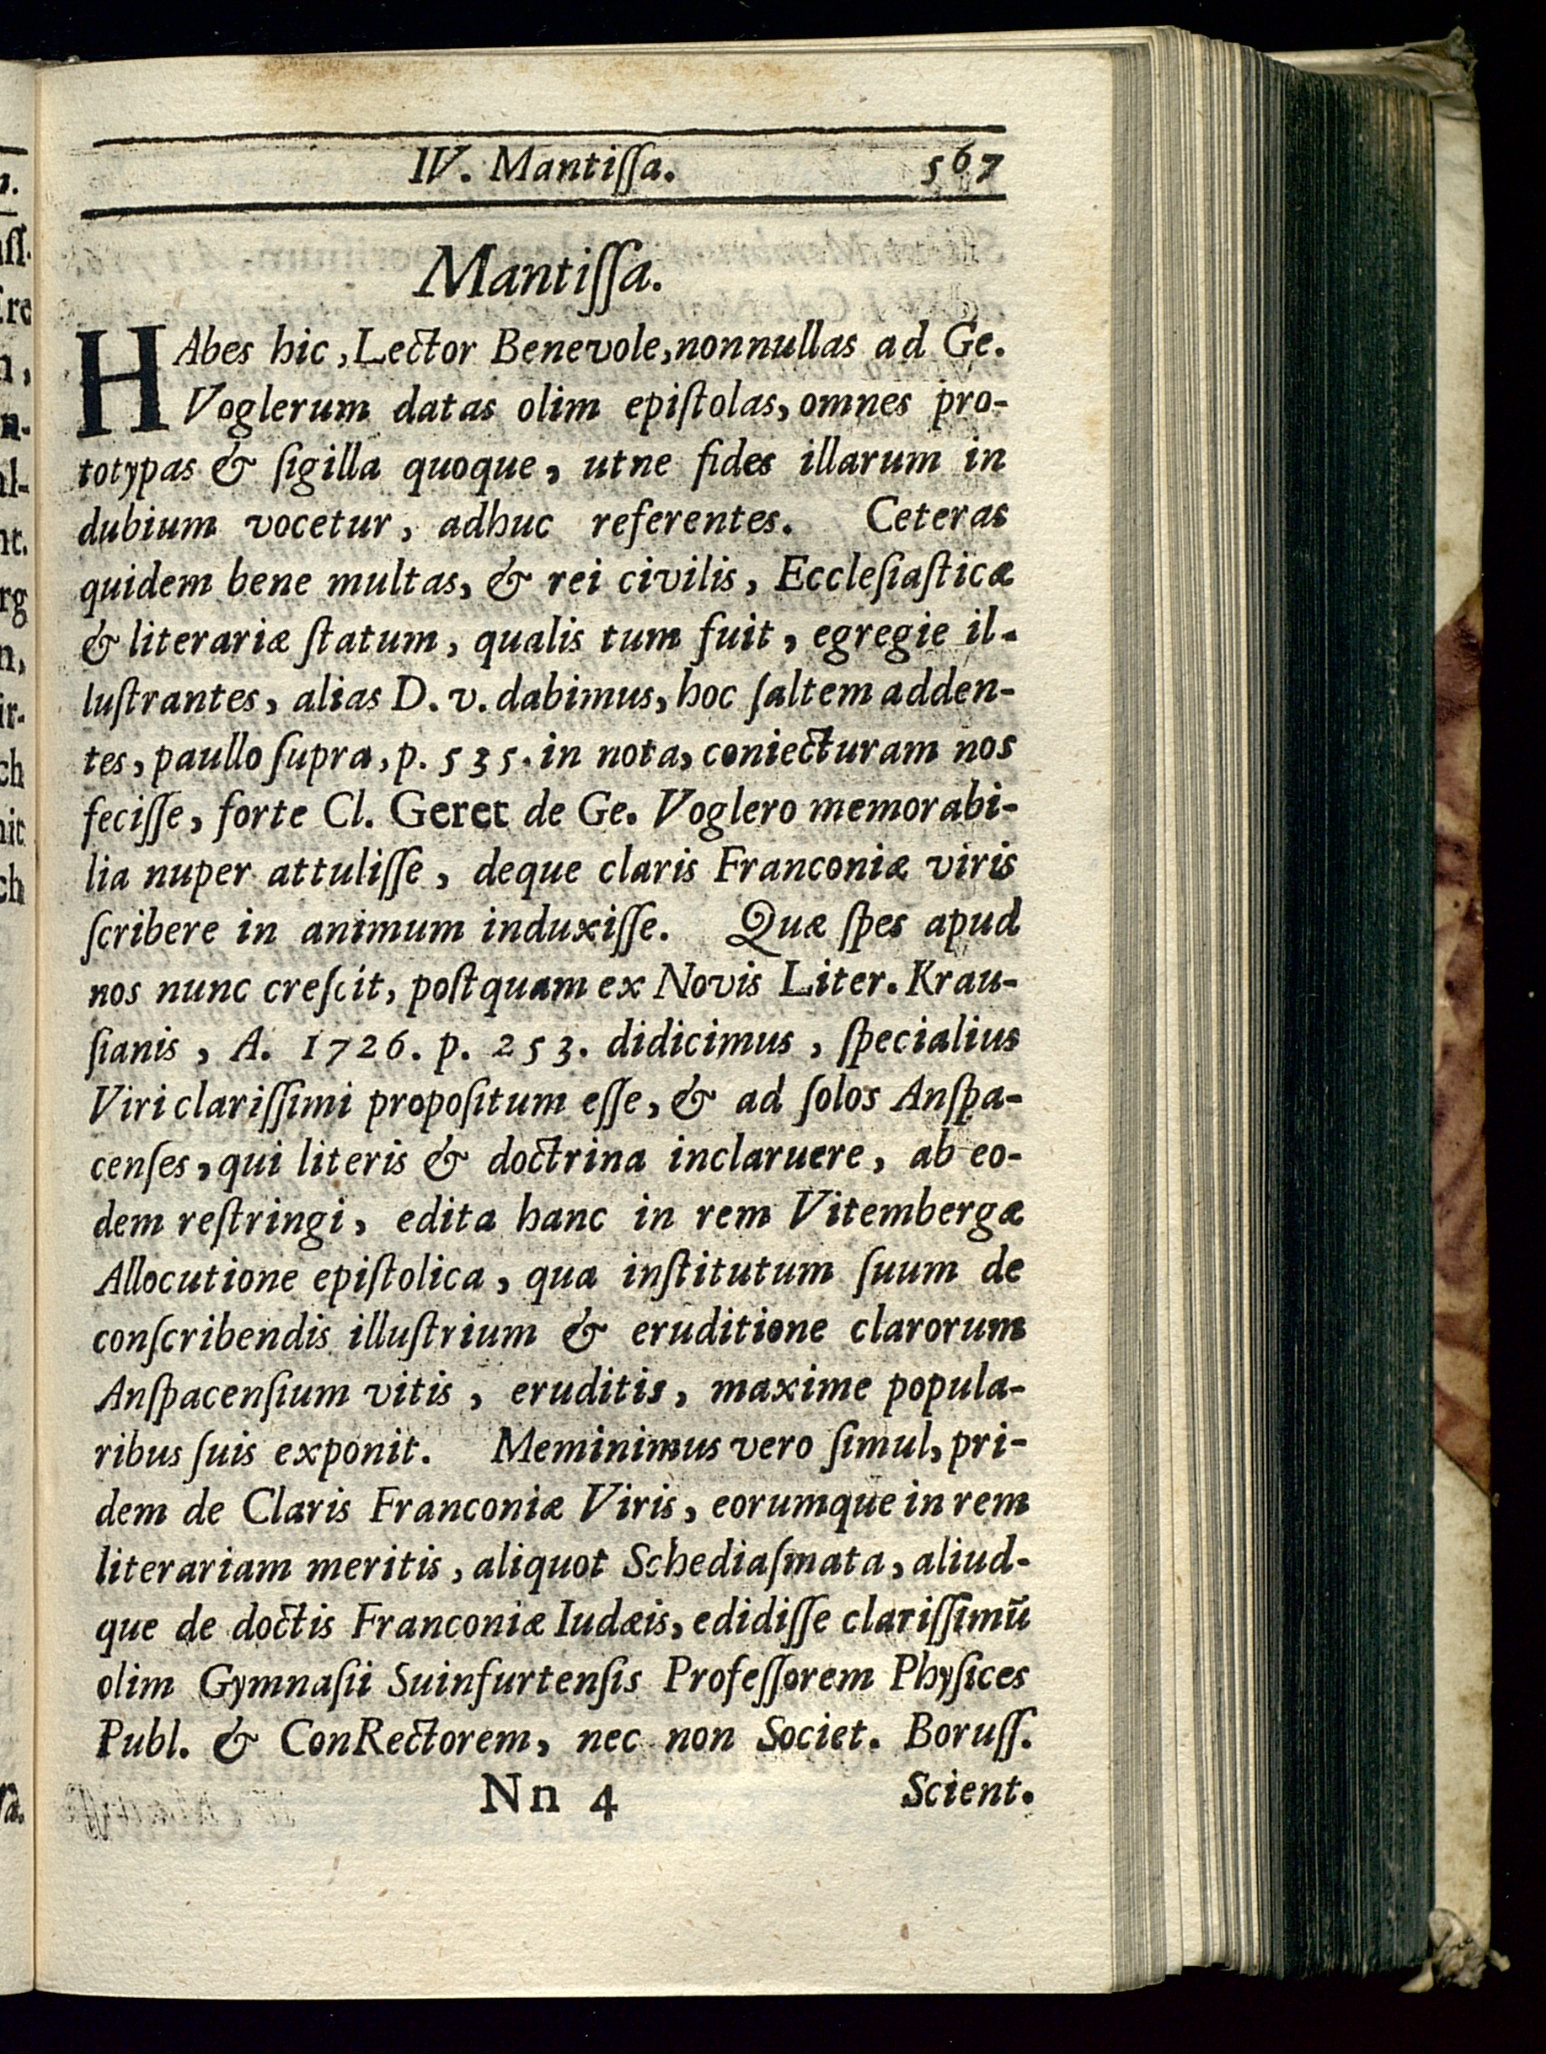 IV. Mantiſſa. 567
Mantiſſa.
HAbes hic, Lector Benevole, nonnullas ad Ge.
Voglerum datas olim epiſtolas, omnes pro-
totypas & ſigilla quoque, utne fides illarum in
dubium vocetur, adhuc referentes. Ceteras
quidem bene multas, & rei civilis, Eccleſiaſticæ
& literariæ ſtatum, qualis tum fuit, egregie il-
luſtrantes, alias D. v. dabimus, hoc ſaltem adden-
tes, paullo ſupra, p. 535. in nota, coniecturam nos
feciſſe, forte Cl. Geret de Ge. Voglero memorabi-
lia nuper attuliſſe, deque claris Franconiæ viris
ſcribere in animum induxiſſe. Quæ ſpes apud
nos nunc creſcit, poſtquam ex Novis Liter. Krau-
ſianis, A. 1726. p. 253. didicimus, ſpecialius
Viri clariſſimi propoſitum eſſe, & ad ſolos Anſpa-
cenſes, qui literis & doctrina inclaruere, ab eo-
dem reſtringi, edita hanc in rem Vitembergæ
Allocutione epiſtolica, qua inſtitutum ſuum de
conſcribendis illuſtrium & eruditione clarorum
Anſpacenſium vitis, eruditis, maxime popula-
ribus ſuis exponit. Meminimus vero ſimul, pri-
dem de Claris Franconiæ Viris, eorumque in rem
literariam meritis, aliquot Schediaſmata, aliud-
que de doctis Franconiæ Iudæis, edidiſſe clariſſimū
olim Gymnaſii Suinfurtenſis Profeſſorem Phyſices
Publ. & ConRectorem, nec non Societ. Boruſſ.
Nn 4 Scient.